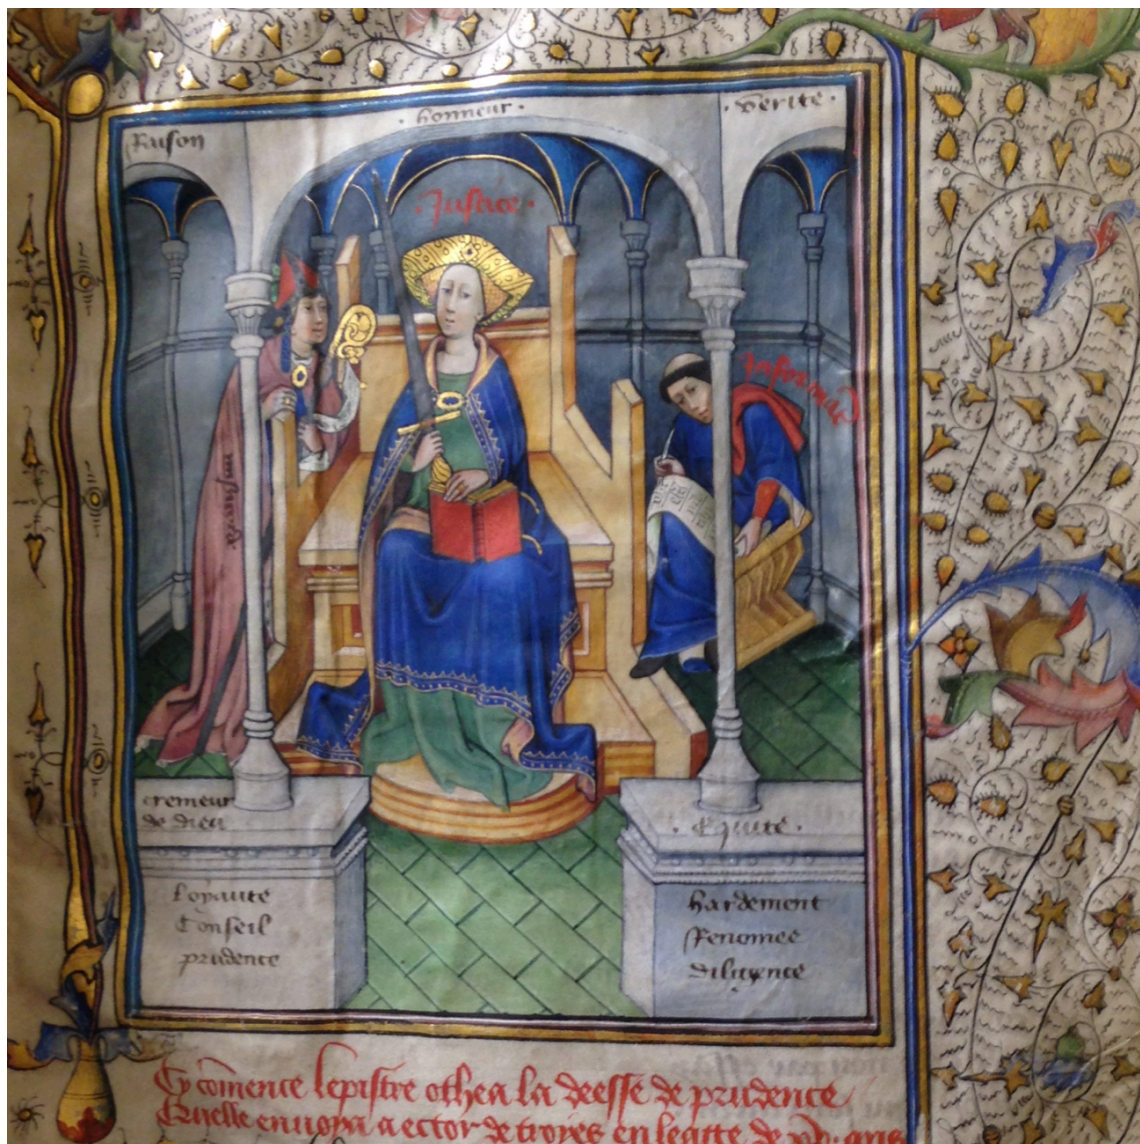 Raison
· honneur ·
· verite ·
· Justice ·
cremeur
de dieu
· Equite ·
loyaute
Conseil
prudence
hardement
Renomee
diligence
Cy comence lepistre othea la deesse de prudence
Quelle envoya a ector de troyes en leage de xv. ans